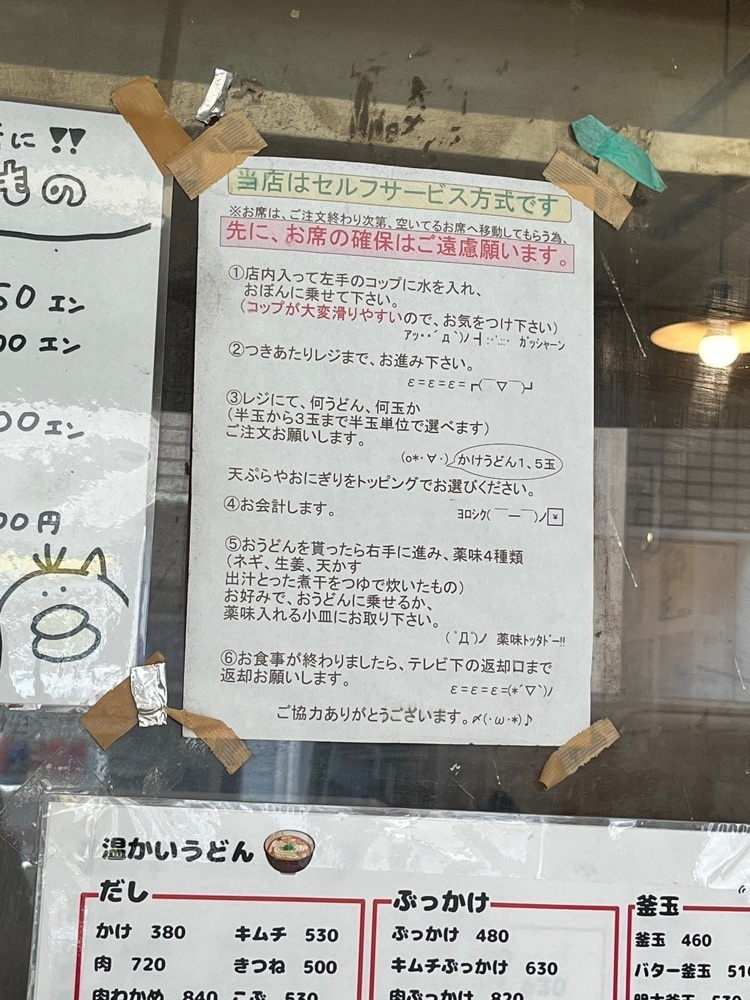 に!!
の
50 エン
00 エン
00 エン
00 円
当店はセルフサービス方式です
※お席は、ご注文終わり次第、空いてるお席へ移動してもらう為、
先に、お席の確保はご遠慮願います。
①店内入って左手のコップに水を入れ、
おぼんに乗せて下さい。
(コップが大変滑りやすいので、お気をつけ下さい)
アッ・・´д`)ノ┤:･'.::･ ガッシャーン
②つきあたりレジまで、お進み下さい。
ε=ε=ε=┏(￣▽￣)┛
③レジにて、何うどん、何玉か
(半玉から3玉まで半玉単位で選べます)
ご注文お願いします。
(o*・∀・) かけうどん1、5玉
天ぷらやおにぎりをトッピングでお選びください。
④お会計します。
ﾖﾛｼｸ(￣ー￣)ノ¥
⑤おうどんを貰ったら右手に進み、薬味4種類
(ネギ、生姜、天かす
出汁とった煮干をつゆで炊いたもの)
お好みで、おうどんに乗せるか、
薬味入れる小皿にお取り下さい。
(ﾟДﾟ)ノ 薬味ﾄｯﾀﾄﾞｰ!!
⑥お食事が終わりましたら、テレビ下の返却口まで
返却お願いします。
ε=ε=ε=(*´▽`)ﾉ
ご協力ありがとうございます。〆(･ω･*)♪
温かいうどん
だし
かけ 380 キムチ 530
肉 720 きつね 500
肉わかめ 840 こぶ 530
ぶっかけ
ぶっかけ 480
キムチぶっかけ 630
肉ぶっかけ 820
釜玉
釜玉 460
バター釜玉 510
明太釜玉 530